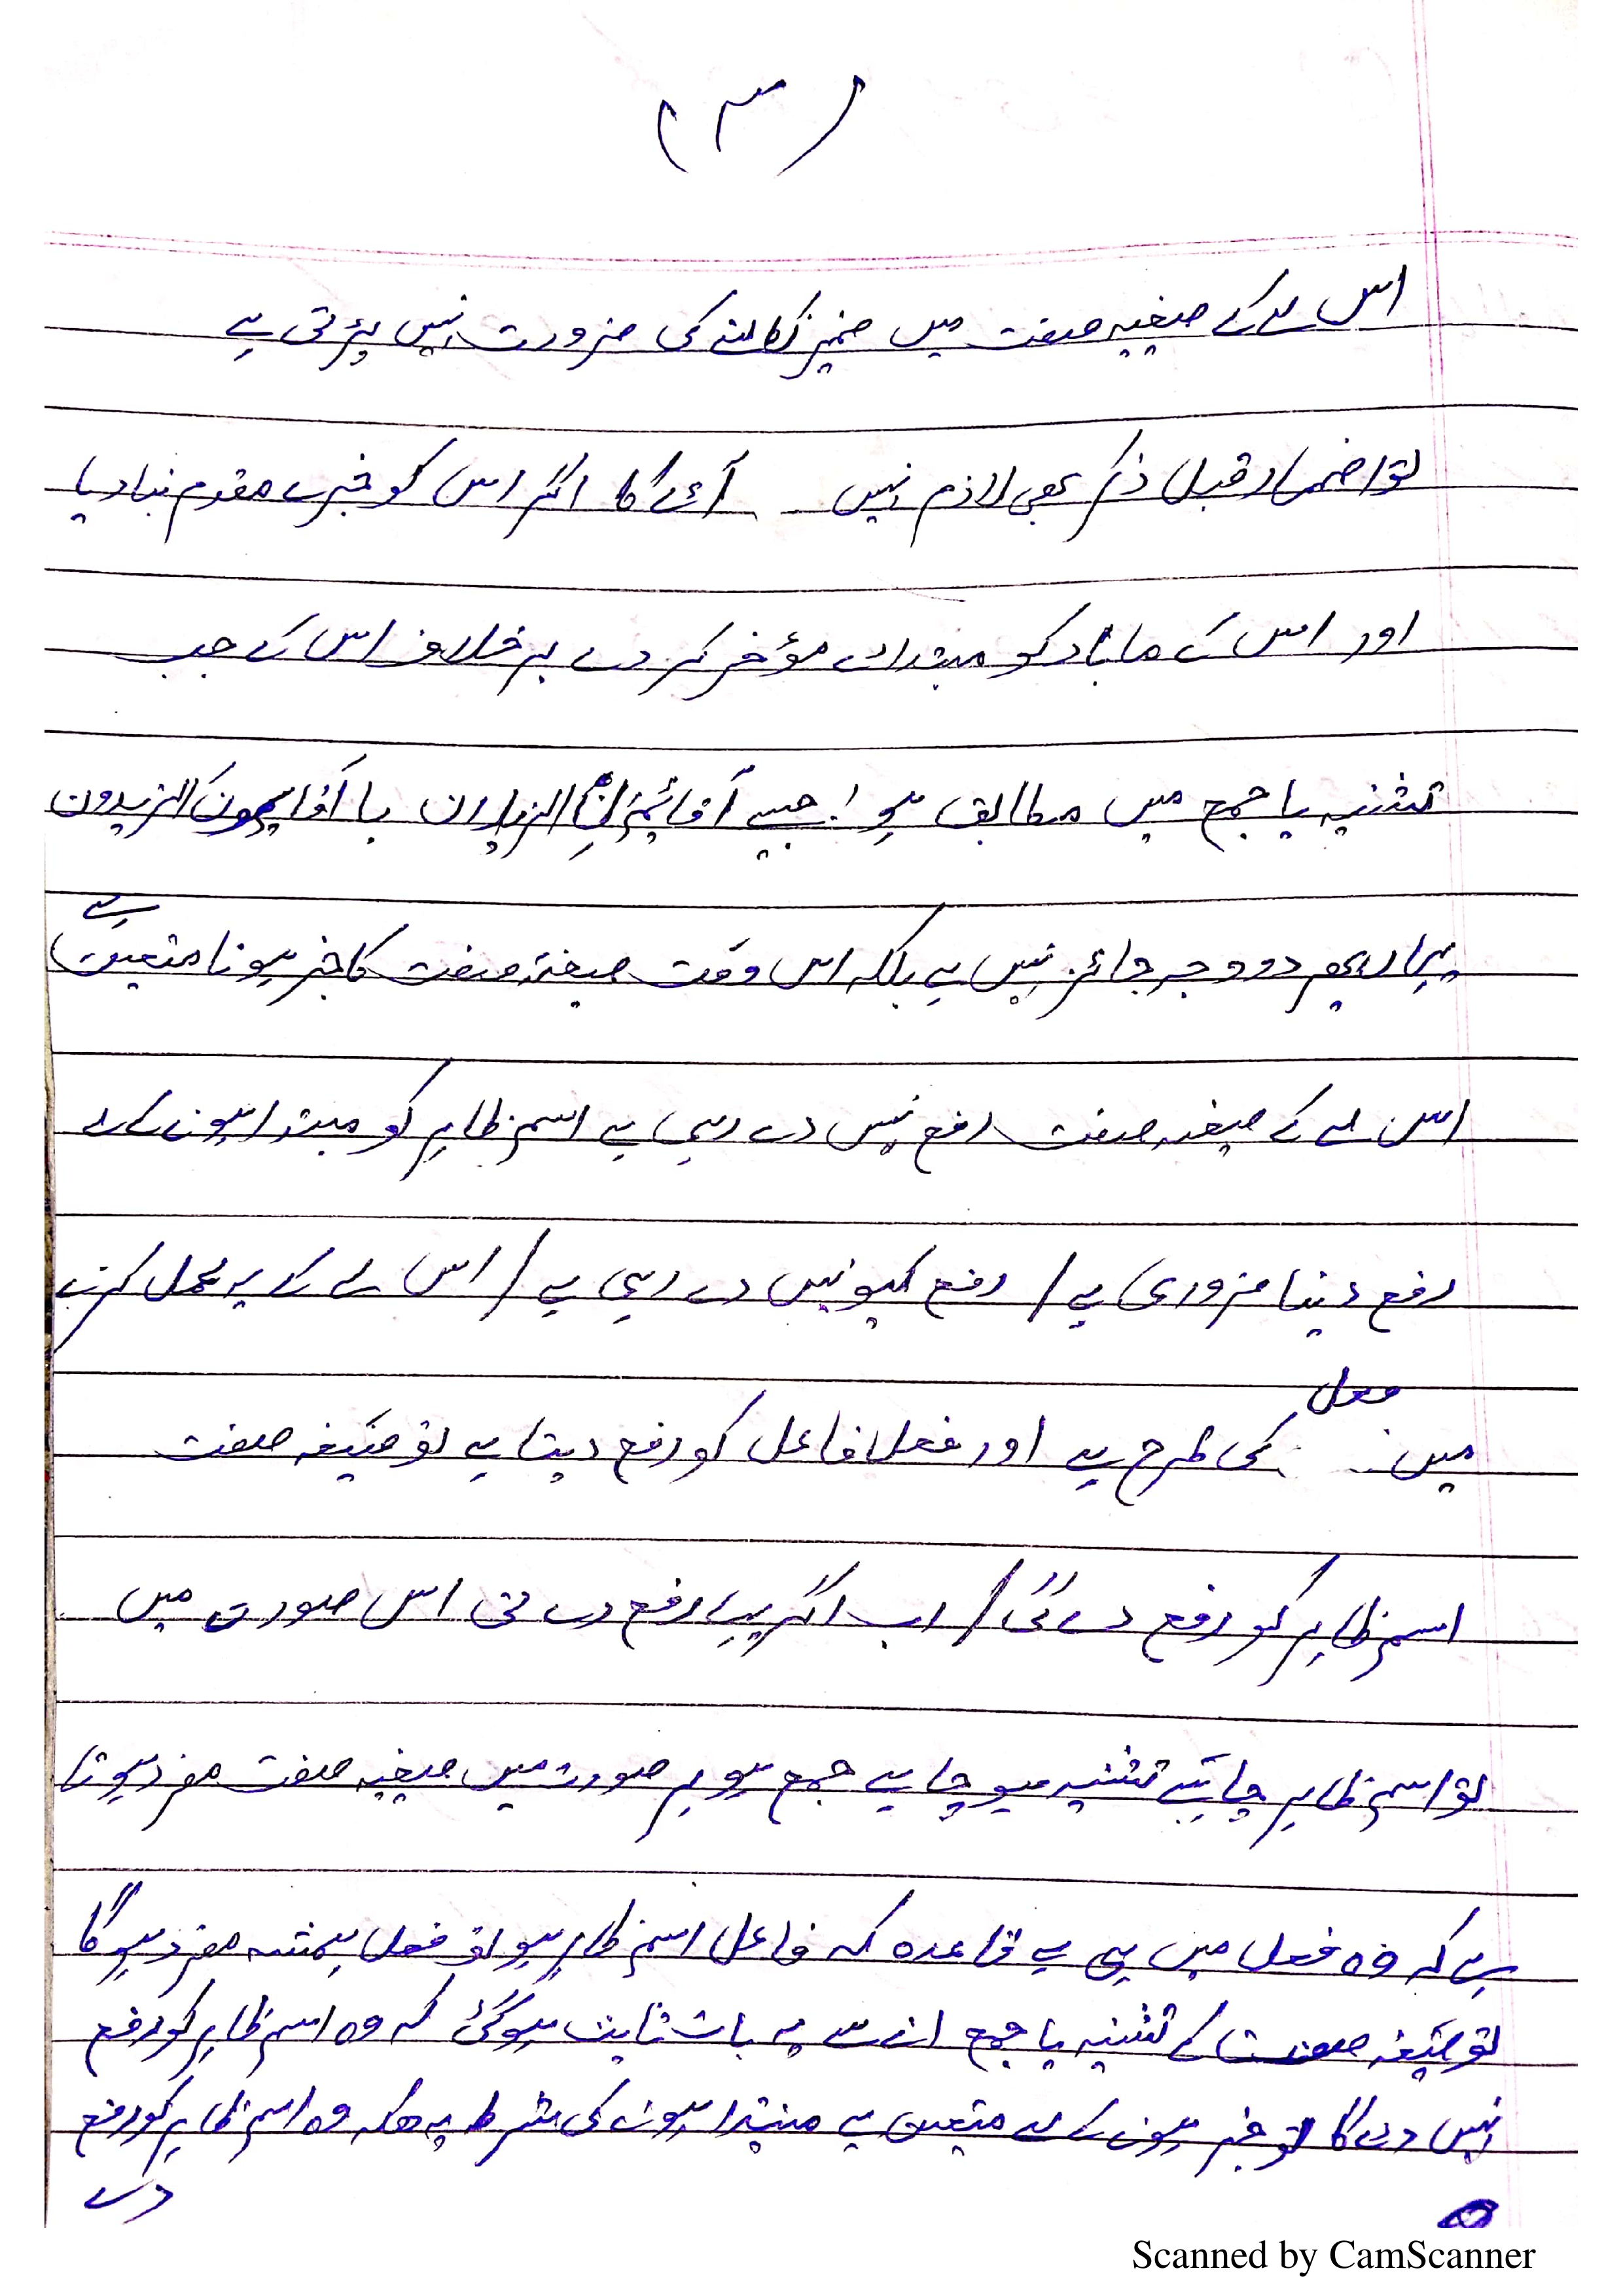 (۳)
اس لے کے صیغیہ صفت میں ضمیر نکالنے کی ضرورت نہیں پڑتی ہے
تو اضمار قبل ذکر بھی لازم نہیں آئے گا اگر اس کو خبرے مقدم بنا دیا
اور اس کے ما باد کو مبتداے مؤخر کر دے بر خلاف اس کے جب
تثنیہ یا جمع میں مطابق ہو! جیسے أقائمان الزیدان یا أقایمون الزیدون
یہاں پھر دو وجہ جائز نہیں ہے بلکہ اس وقت صیغئہ صفت کا خبر ہونا متعین ہے
اس لے کے صیغہ صفت رفع نہیں دے رہی ہے اسم ظاہر کو مبتدا ہونے کے لے
رفع دینا ضروری ہے / رفع کیو نہیں دے رہی ہے / اس لے کے یہ عمل کرنے
میں فعل کی طرح ہے اور فعل فاعل کو رفع دیتا ہے تو صیغہ صفت
اسم ظاہر کو رفع دے گی / اب اگر یہ رفع دے تی اس صورت میں
تو اسم ظاہر چاہیے تثنیہ ہو چاہے جمع ہو ہر صورت میں صیغیہ صفت مفرد ہوتا
ہے کہ وہ فعل میں ہی ہے قاعدہ کہ فاعل اسم ظاہر ہو تو فعل ہمشہ مفرد ہو گا
تو صیغہ صفت کے تثنیہ یا جمع انے سے یہ بات ثابت ہو گئی کہ وہ اسم ظاہر کو رفع
نہیں دے گا تو خبر ہونے کے لے متعین ہے مبتدا ہونے کی شرط یہ ھکہ وہ اسم ظاہر کو رفع
دے
Scanned by CamScanner